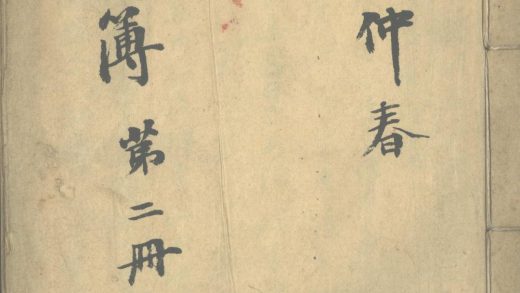 仲春
簿第二冊